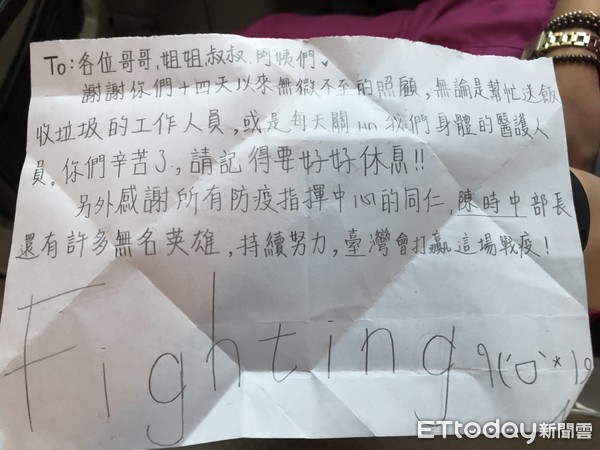 To:各位哥哥、姐姐、叔叔、阿姨們、
謝謝你們十四天以來無微不至的照顧,無論是幫忙送飯
收垃圾的工作人員,或是每天關心我們身體的醫護人
員。你們辛苦了,請記得要好好休息!!
另外感謝所有防疫指揮中心的同仁,陳時中部長
還有許多無名英雄,持續努力,臺灣會打贏這場戰疫!
Fighting٩(ˊᗜˋ*)و
ETtoday新聞雲